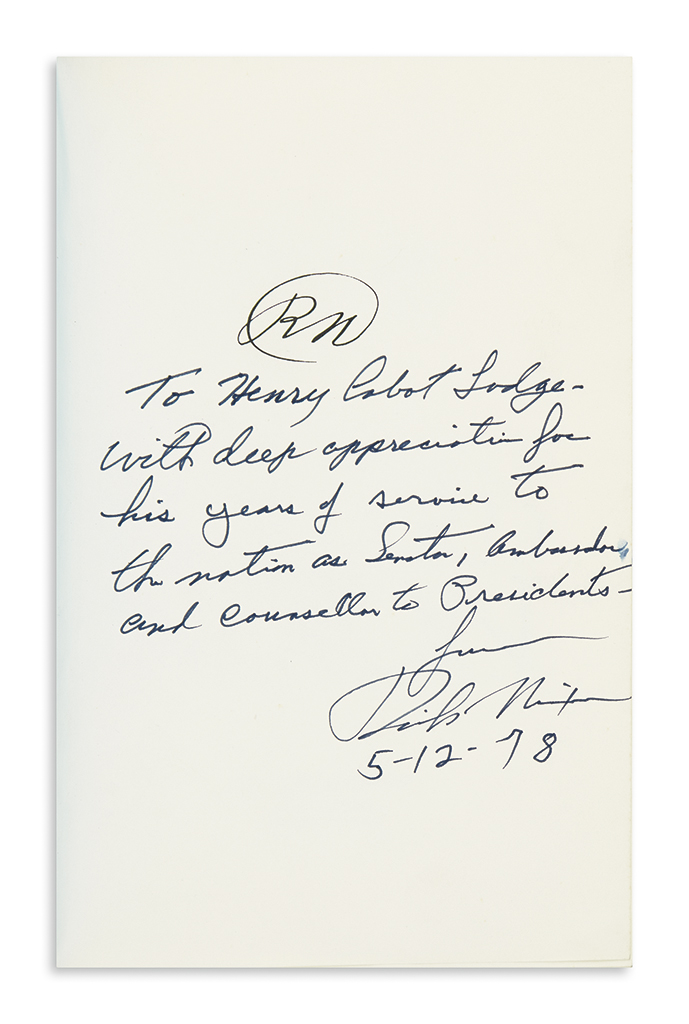 RN
To Henry Cabot Lodge-
with deep appreciation for
his years of service to
the nation as Senator, Ambassador,
and Counsellor to Presidents-
from
Dick Nixon
5-12-78